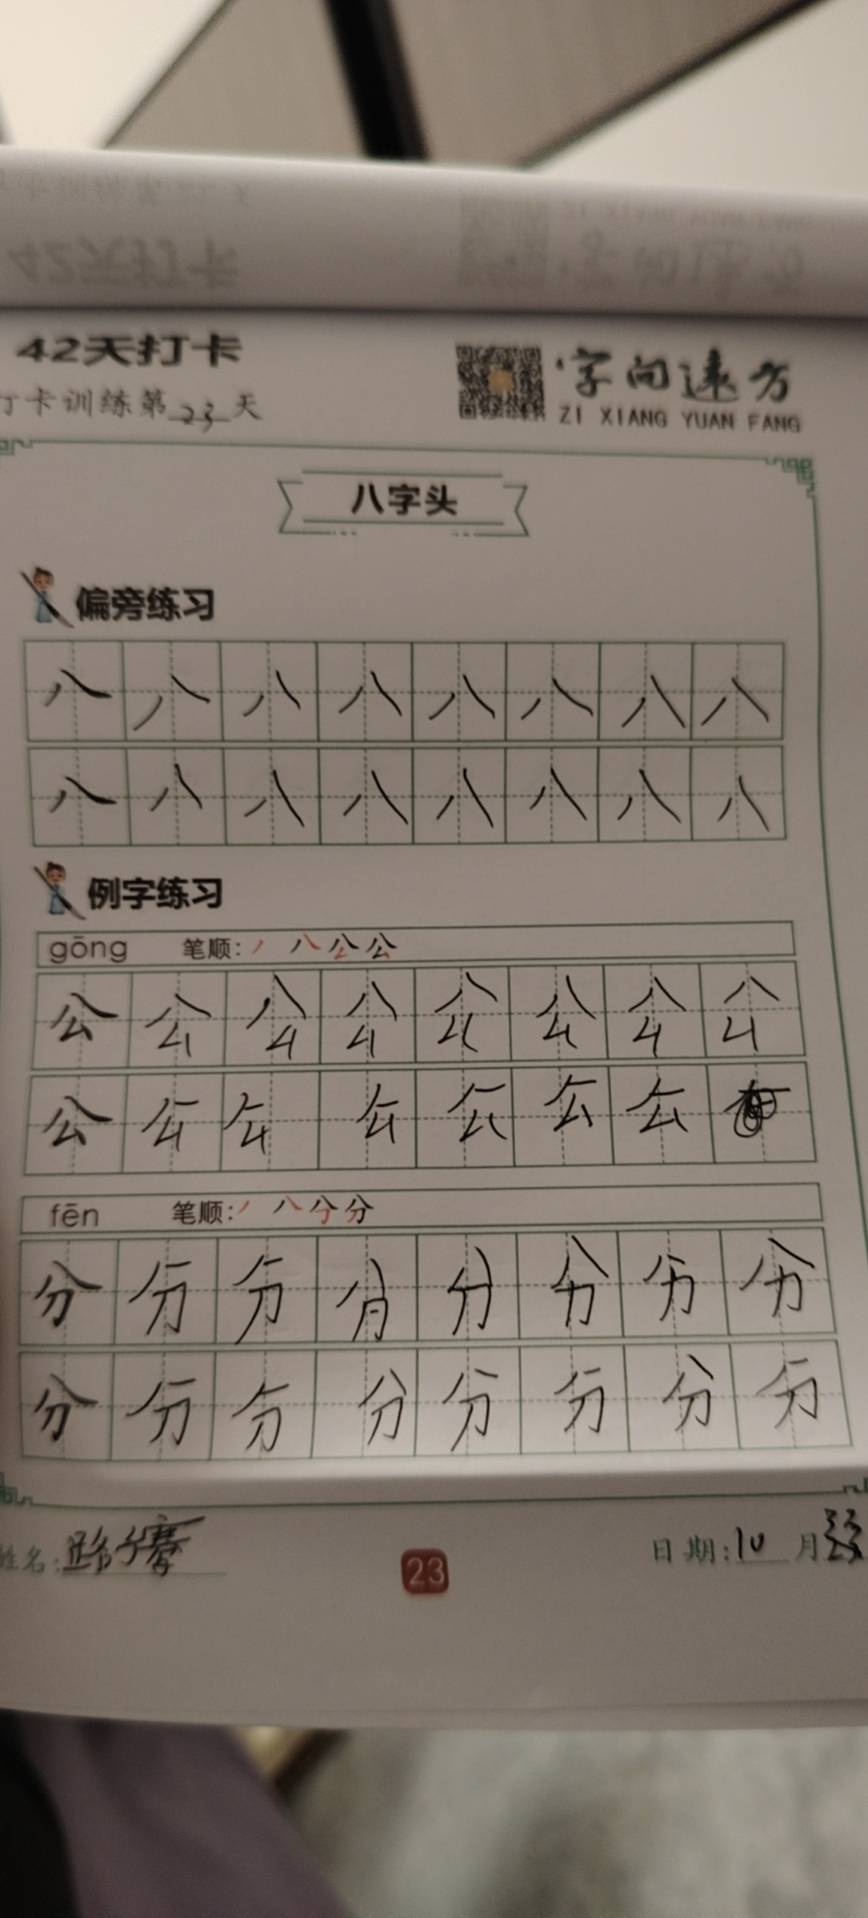 42天打卡
打卡训练第23天
字向远方
ZI XIANG YUAN FANG
八字头
偏旁练习
八 八 八 八 八 八 八 八
八 八 八 八 八 八 八 八
例字练习
gōng 笔顺: 丿 八 公 公
公 公 公 公 公 公 公 公
公 公 公 公 公 公 公
fēn 笔顺: 丿 八 分 分
分 分 分 分 分 分 分 分
分 分 分 分 分 分 分 分
姓名: 路子骞
23
日期: 10 月